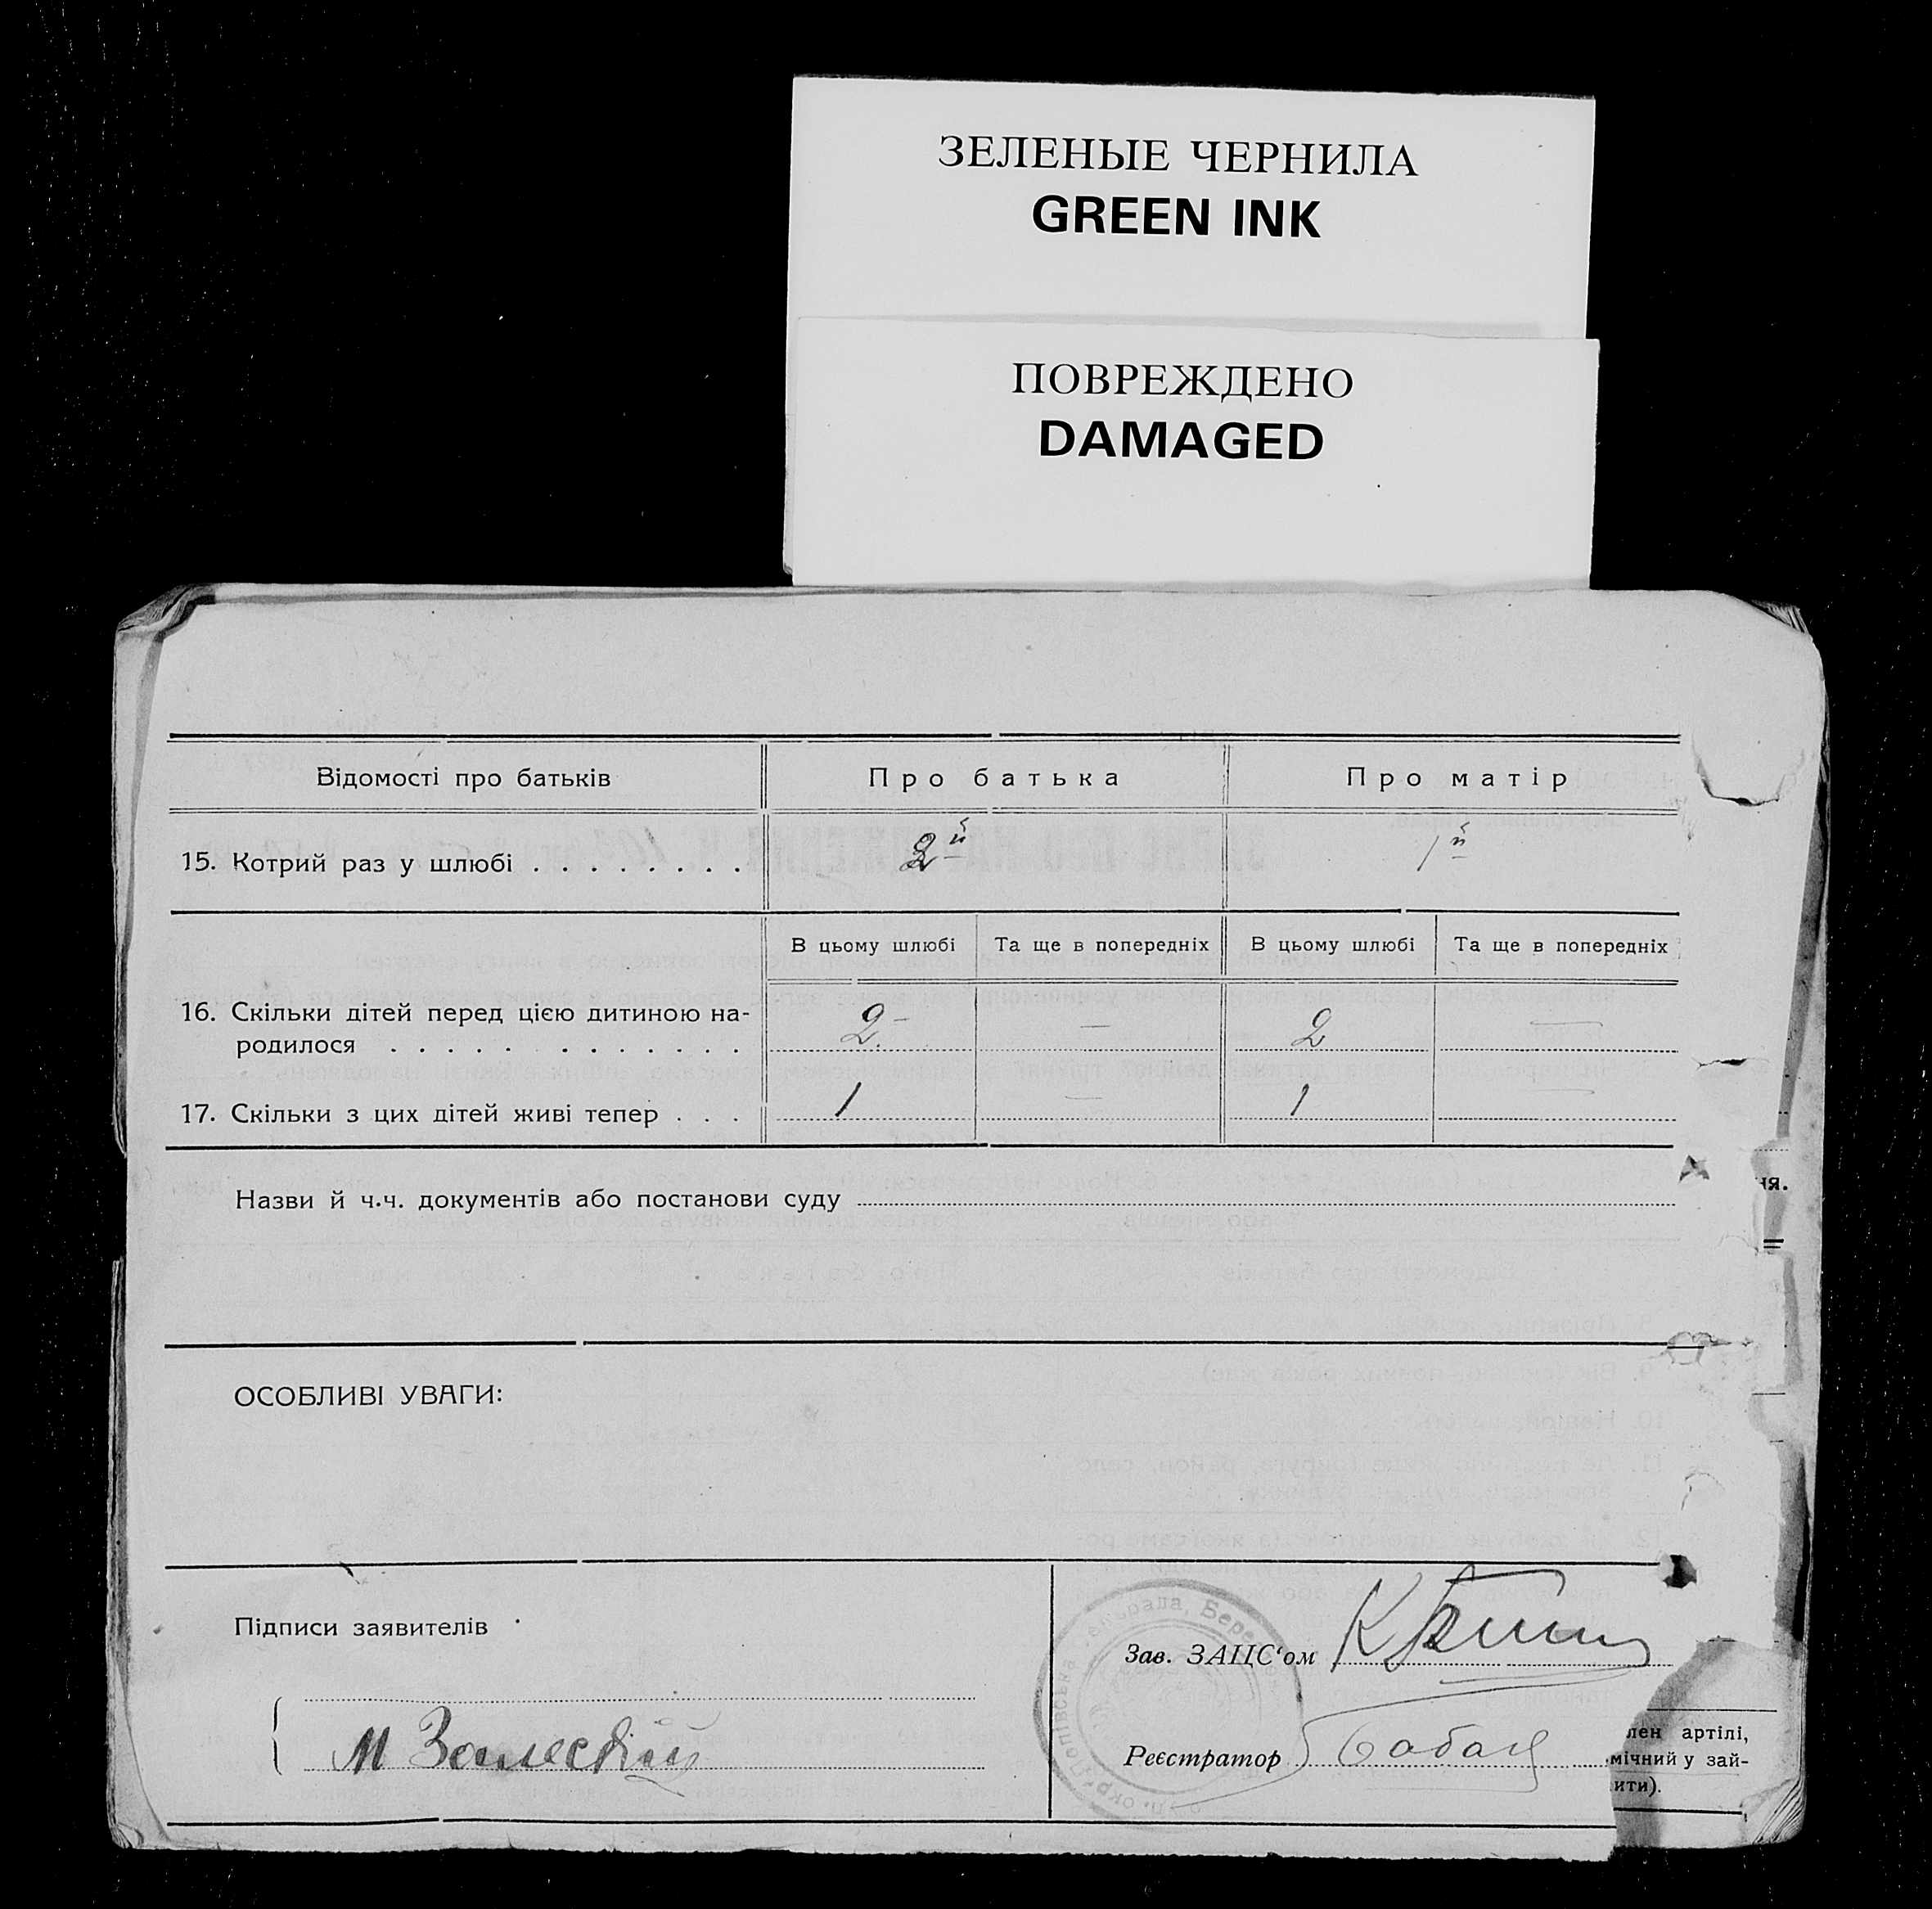 ЗЕЛЕНЫЕ ЧЕРНИЛА
GREEN INK
ПОВРЕЖДЕНО
DAMAGED
Відомості про батьків Про батька Про матір
15. Котрий раз у шлюбі . . . . . . . . 2й 1й
В цьому шлюбі Та ще в попередніх В цьому шлюбі Та ще в попередніх
16. Скільки дітей перед цією дитиною на-
родилося . . . . . . . . . . . . 2 — 2 —
17. Скільки з цих дітей живі тепер . . . 1 — 1 —
Назви й ч.ч. документів або постанови суду
ня.
ОСОБЛИВІ УВАГИ:
Підписи заявителів
Зав. ЗАЦС‘ом
М
Реєстратор
лен артілі,
мічний у зай-
ити).